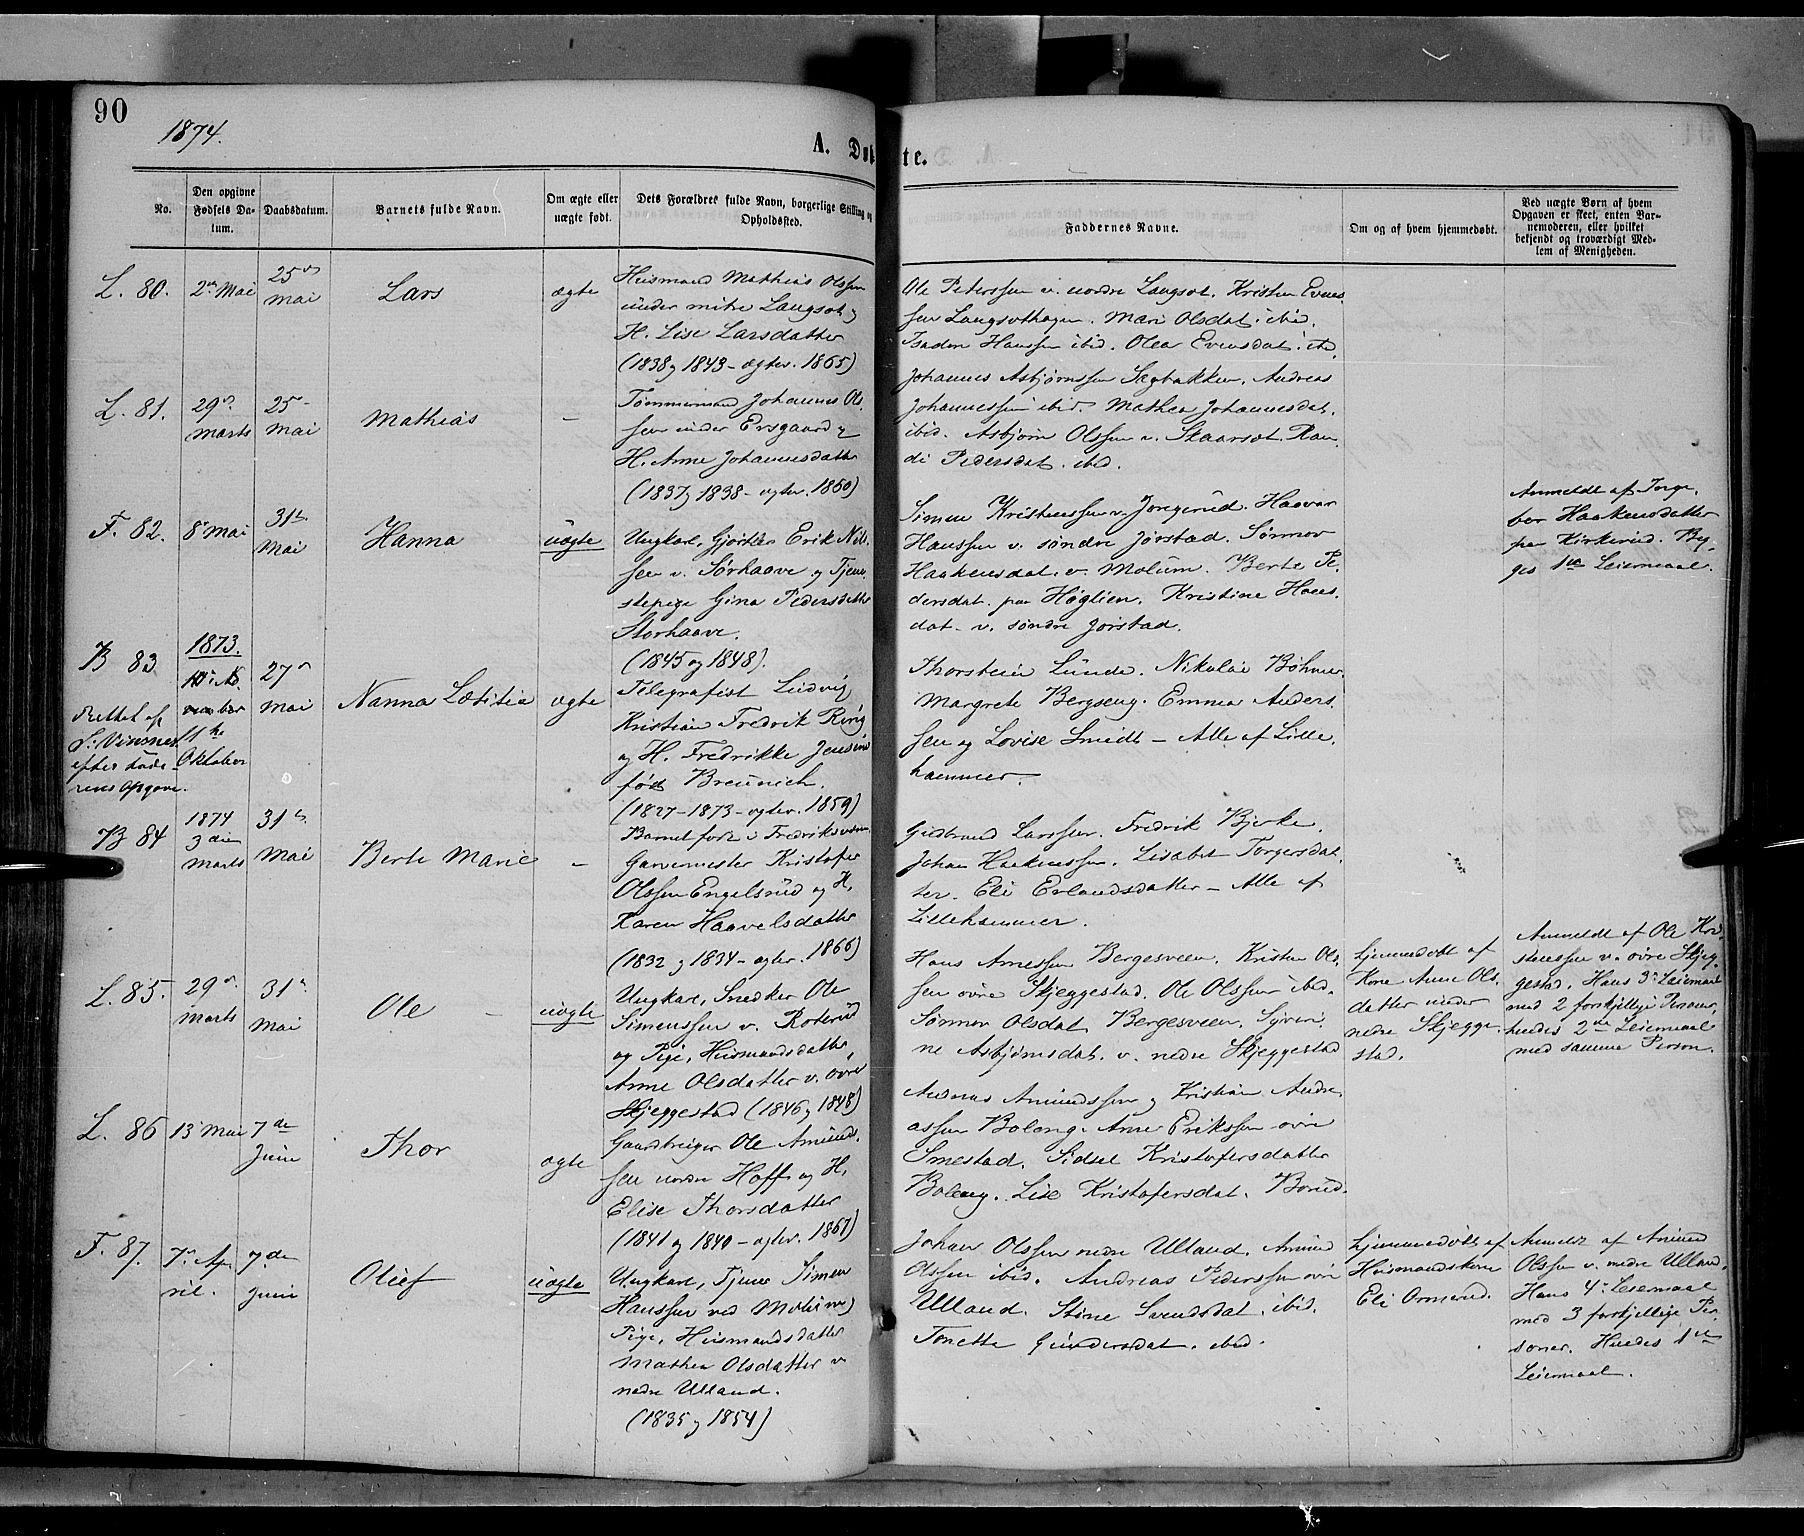 90
1874.
A. Dø
te.
No.
Den opgivne
Fødsels Da-
tum.
Daabsdatum.
Barnets fulde Navn.
Om ægte eller
uægte født.
Dets Forældres fulde Navn, borgerlige Stilling og
Opholdssted.
Faddernes Navne.
Om og af hvem hjemmedøbt.
Ved uægte Børn af hvem
Opgaven er skeet, enten Bar-
nemoderen, eller hvilket
bekjendt og troværdigt Med-
lem af Menigheden.
L. 80.
2den Mai
25de
Mai
Lars
ægte
Husmand Mathias Olssen
under mitre Langset og
H. Lise Larsdatter
(1838 og 1843 - ægtev. 1865)
Ole Peterssen v. nordre Langset. Kristen Evens-
sen Langsethagen. Mari Olsdat. ibid.
Haussen ibid. Olea Evensdat. ibd.
L. 81.
29de
Marts
25-
Mai
Mathias
-
Tømmermand Johannes Ols-
sen under Ersgaard og
H. Anne Johannesdatter
(1837 og 1838 - ægtev. 1860)
Johannes Asbjørnssen Sagbakken. Andreas
Johannessen ibid. Mathea Johannesdat.
ibid. Asbjørn Olssen v. Skaarset. Ran-
di Pedersdat. ibid.
F. 82.
8de Mai
31te
Mai
Hanna
uægte
Ungkarl, Gjørtler Erik Nil-
sen v. Sørhaave og Tjene-
stepige Gina Pedersdatter
Storhaave.
(1845 og 1848).
Simen Kristenssen v. Jorgerud. Haavar
Hanssen v. søndre Jørstad. Sønnov
Haakensdat. v. Molum. Berte Pe-
dersdat. paa Høglien. Kristine Hans-
dat. v. søndre Jørstad.
Anmeldt af Torge-
bor Haakensdatter
paa Kirkerud. Beg-
ges 1ste Leiermaal.
B 83
1873.
11te
Oktober
27de
Mai
Nanna Lætitia
ægte
Rettet af
S. Vinsnes
efter Fade-
rens Opgave.
Telegrafist Ludvig
Kristian Fredrik Ring
og H. Fredrikke Jensine
født Breunich.
(1827 - 1873 - ægtev. 1859)
Thorstein Lunde. Nikolai Bøhmer
Margrete Bergseng. Emma Anders-
sen og Lovise Smedt - Alle af Lille-
hammer.
B 84
1874
3die
Marts
31te
Mai
Berte Marie
-
Garvermester Kristofer
Olssen Engelsrud og H.
Karen Haavelsdatter
(1832 og 1834 - ægtev. 1866)
Gudbrand Larssen. Fredrik Bjerke.
Johan Haakenssen. Lisabet Torgersdat-
ter. Eli Erlandsdatter - Alle af
Lillehammer.
L. 85.
29de
Marts
31te
Mai
Ole
uægte
Ungkarl, Snedker Ole
Simenssen v. Roterud
og Pige, Husmandsdatter
Anne Olsdatter v. øvre
Skjeggestad (1846 og 1848)
Hans Arnessen Bergesveen. Kristen Ols-
sen øvre Skjeggestad. Ole Olssen ibid.
Sønnov Olsdat. Bergesveen. Syveri-
ne Asbjørnsdat. v. nedre Skjeggestad
hjemmedøbt af
Kone Anne Ols-
datter under
nedre Skjegge-
stad.
Anmeldt af Ole Kri-
stenssen v. øvre Skjeg-
gestad. Hans 3de Leiermaal
med 2 forskjellige Personer,
hendes 2det Leiermaal
med samme Person.
L. 86
13de Mai
7de
Juni
Thor
ægte
Gaardbruger Ole Amund-
sen nordre Hoff og H.
Elise Thorsdatter
(1841 og 1840 - ægtev. 1867)
Amundssen og Kristian Andre-
assen Boleng. Anne Erikssen øvre
Smestad. Sidsel Kristofersdatter
Boleng. Lise Kristofersdat. Borud.
F. 87.
7de Ap-
ril.
7de
Juni
Oluf
uægte
Ungkarl, Tjener Simen
Hanssen ved Molum og
Pige, Husmandsdatter
Mathea Olsdatter v.
nedre Ulland.
(1835 og 1854)
Johan Olssen nedre Ulland. Amund
Olssen ibid. Andreas Pederssen øvre
Ulland. Stine Svendsdat. ibid.
Tonette Gundersdat. ibid.
hjemmedøbt af
Husmandskone
Eli Ormerud.
Anmeldt af Amund
Olssen v. nedre Ulland.
Hans 4de Leiermaal
med 3 forskjellige Per-
soner. Hendes 1ste
Leiermaal.